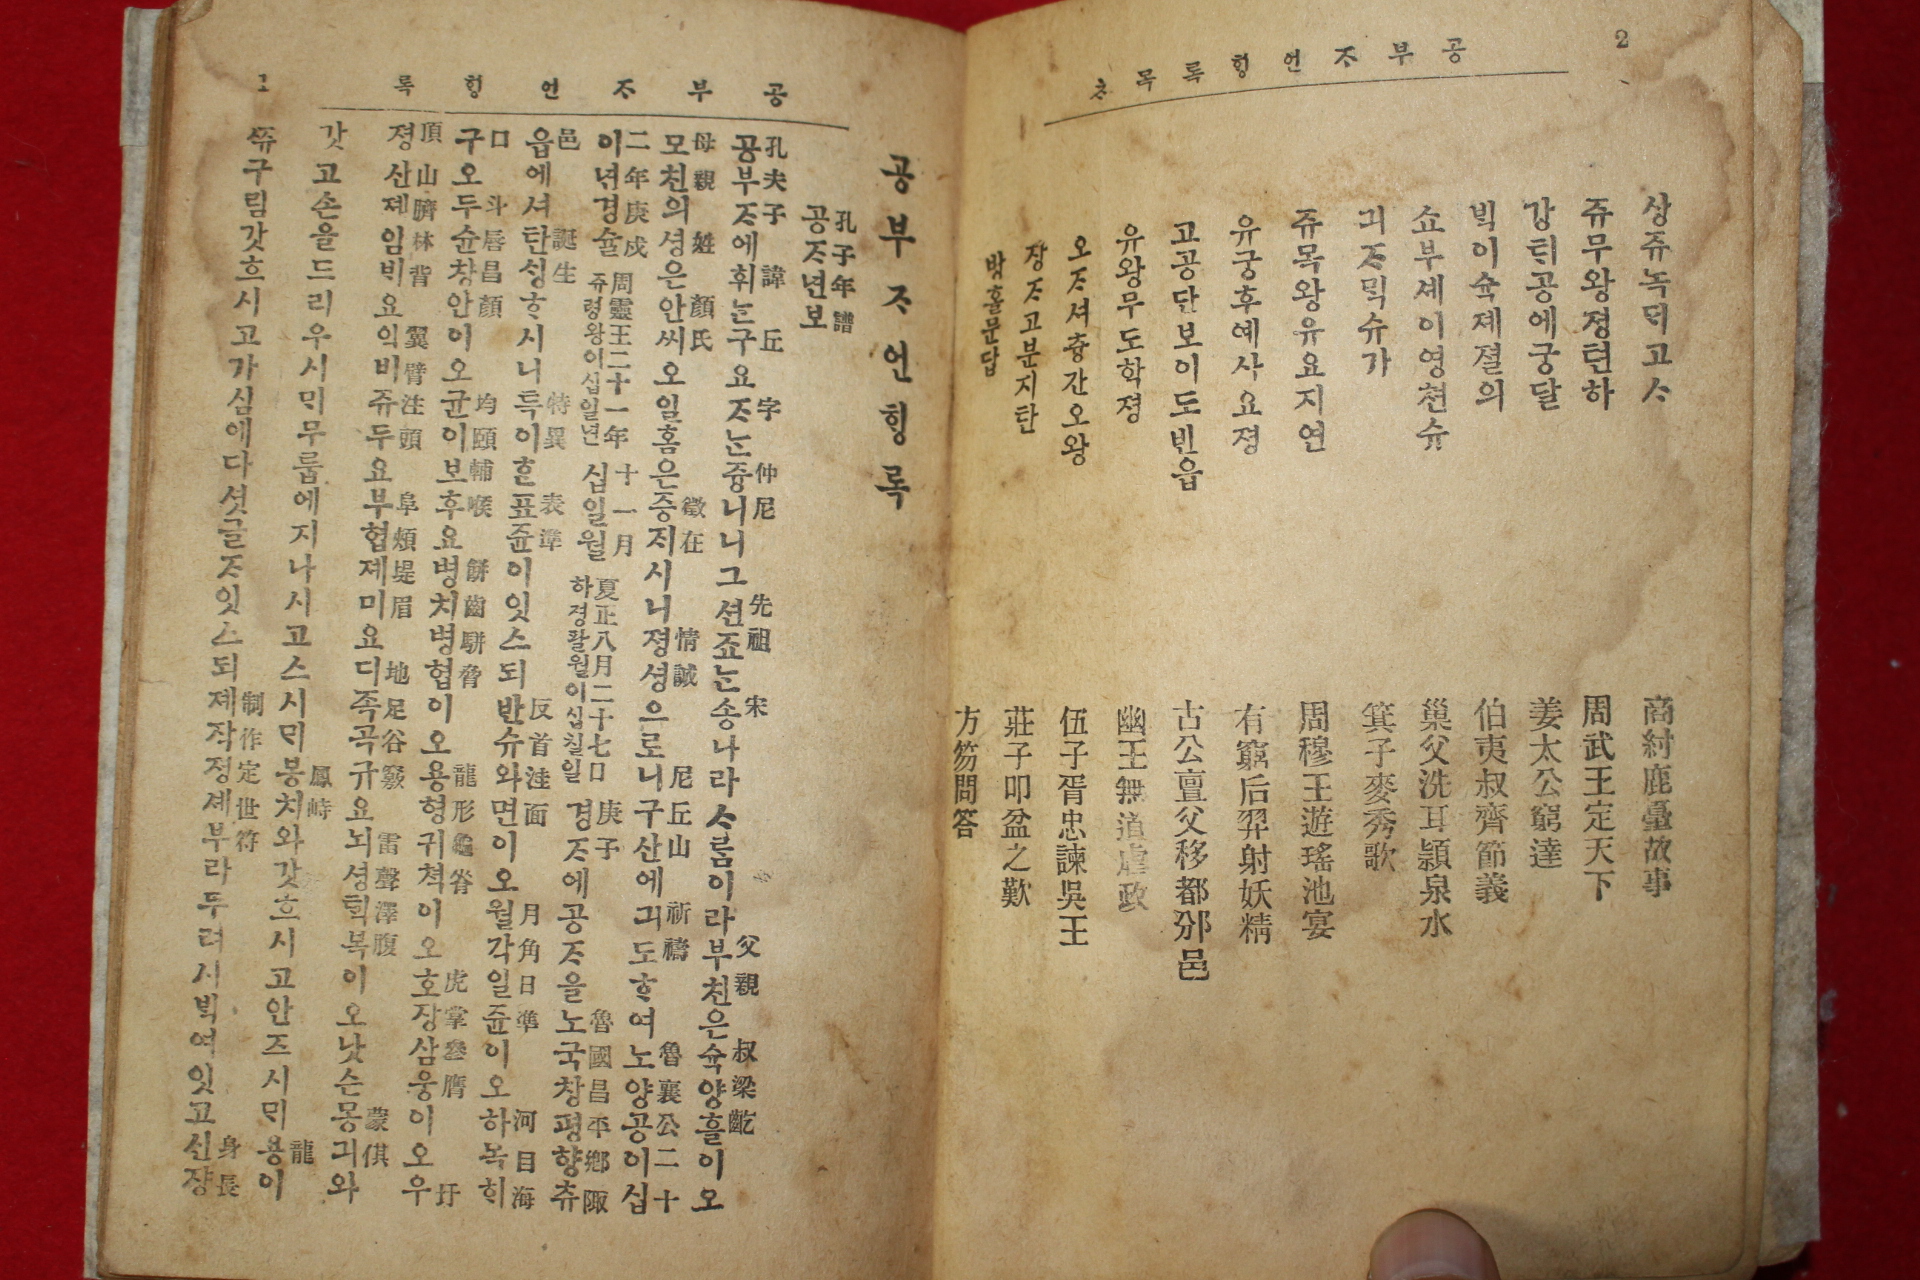 공부ᄌᆞ언ᄒᆡᆼ록목ᄎᆞ 2
상쥬녹ᄃᆡ고ᄉᆞ 商紂鹿臺故事
쥬무왕졍텬하 周武王定天下
강ᄐᆡ공에궁달 姜太公窮達
ᄇᆡᆨ이슉졔졀의 伯夷叔齊節義
쇼부셰이영쳔슈 巢父洗耳潁泉水
긔ᄌᆞᄆᆡᆨ슈가 箕子麥秀歌
쥬목왕유요지연 周穆王遊瑤池宴
유궁후예사요졍 有窮后羿射妖精
고공단보이도빈읍 古公亶父移都邠邑
유왕무도학졍 幽王無道虐政
오ᄌᆞ셔츙간오왕 伍子胥忠諫吳王
쟝ᄌᆞ고분지탄 莊子叩盆之歎
방홀문답 方笏問答
공부ᄌᆞ언ᄒᆡᆼ록 1
공부ᄌᆞ언ᄒᆡᆼ록
孔子年譜
공ᄌᆞ년보
孔夫子 諱 丘 字 仲尼 先祖 宋 父親 叔梁紇
공부ᄌᆞ에휘ᄂᆞᆫ구요ᄌᆞᄂᆞᆫ즁니니그션죠ᄂᆞᆫ송나라ᄉᆞᄅᆞᆷ이라부친은슉양흘이오
母親 姓 顔氏 徵在 情誠 尼丘山 祈禱 魯襄公二十
모친의셩은안씨오일홈은증ᄌᆡ시니졍셩으로니구산에긔도ᄒᆞ여노양공이십
二年庚戌 周靈王二十一年 十一月 夏正八月二十七日 庚子 魯國昌平鄕陬
이년경슐 쥬령왕이십일년 십일월 하졍팔월이십칠일 경ᄌᆞ에공ᄌᆞ을노국창평향츄
邑 誕生 特異 表準 反首洼面 月角日準 河目海
읍에셔탄ᄉᆡᆼᄒᆞ시니특이ᄒᆞᆫ표쥰이잇스되반슈와면이오월각일쥰이오하목ᄒᆡ
口 斗唇昌顔 均頤輔喉 餠齒騈脅 龍形龜脊 虎掌參膺 圩
구오두슌창안이오균이보후요병치병협이오용형귀쳑이오호장삼응이오우
頂山臍林背 翼臂注頭 阜頰堤眉 地足谷竅 雷聲澤腹 蒙倛
졍산졔임ᄇᆡ요익비쥬두요부협졔미요디족곡규요뇌셩ᄐᆡᆨ복이오낫슨몽긔와
鳳峙 龍
갓고손을드리우시ᄆᆡ무룹에지나시고스시ᄆᆡ봉치와갓흐시고안즈시ᄆᆡ용이
制作定世符 身長
쮸구림갓흐시고가심에다섯글ᄌᆞ잇스되졔작졍셰부라두려시ᄇᆡᆨ여잇고신쟝